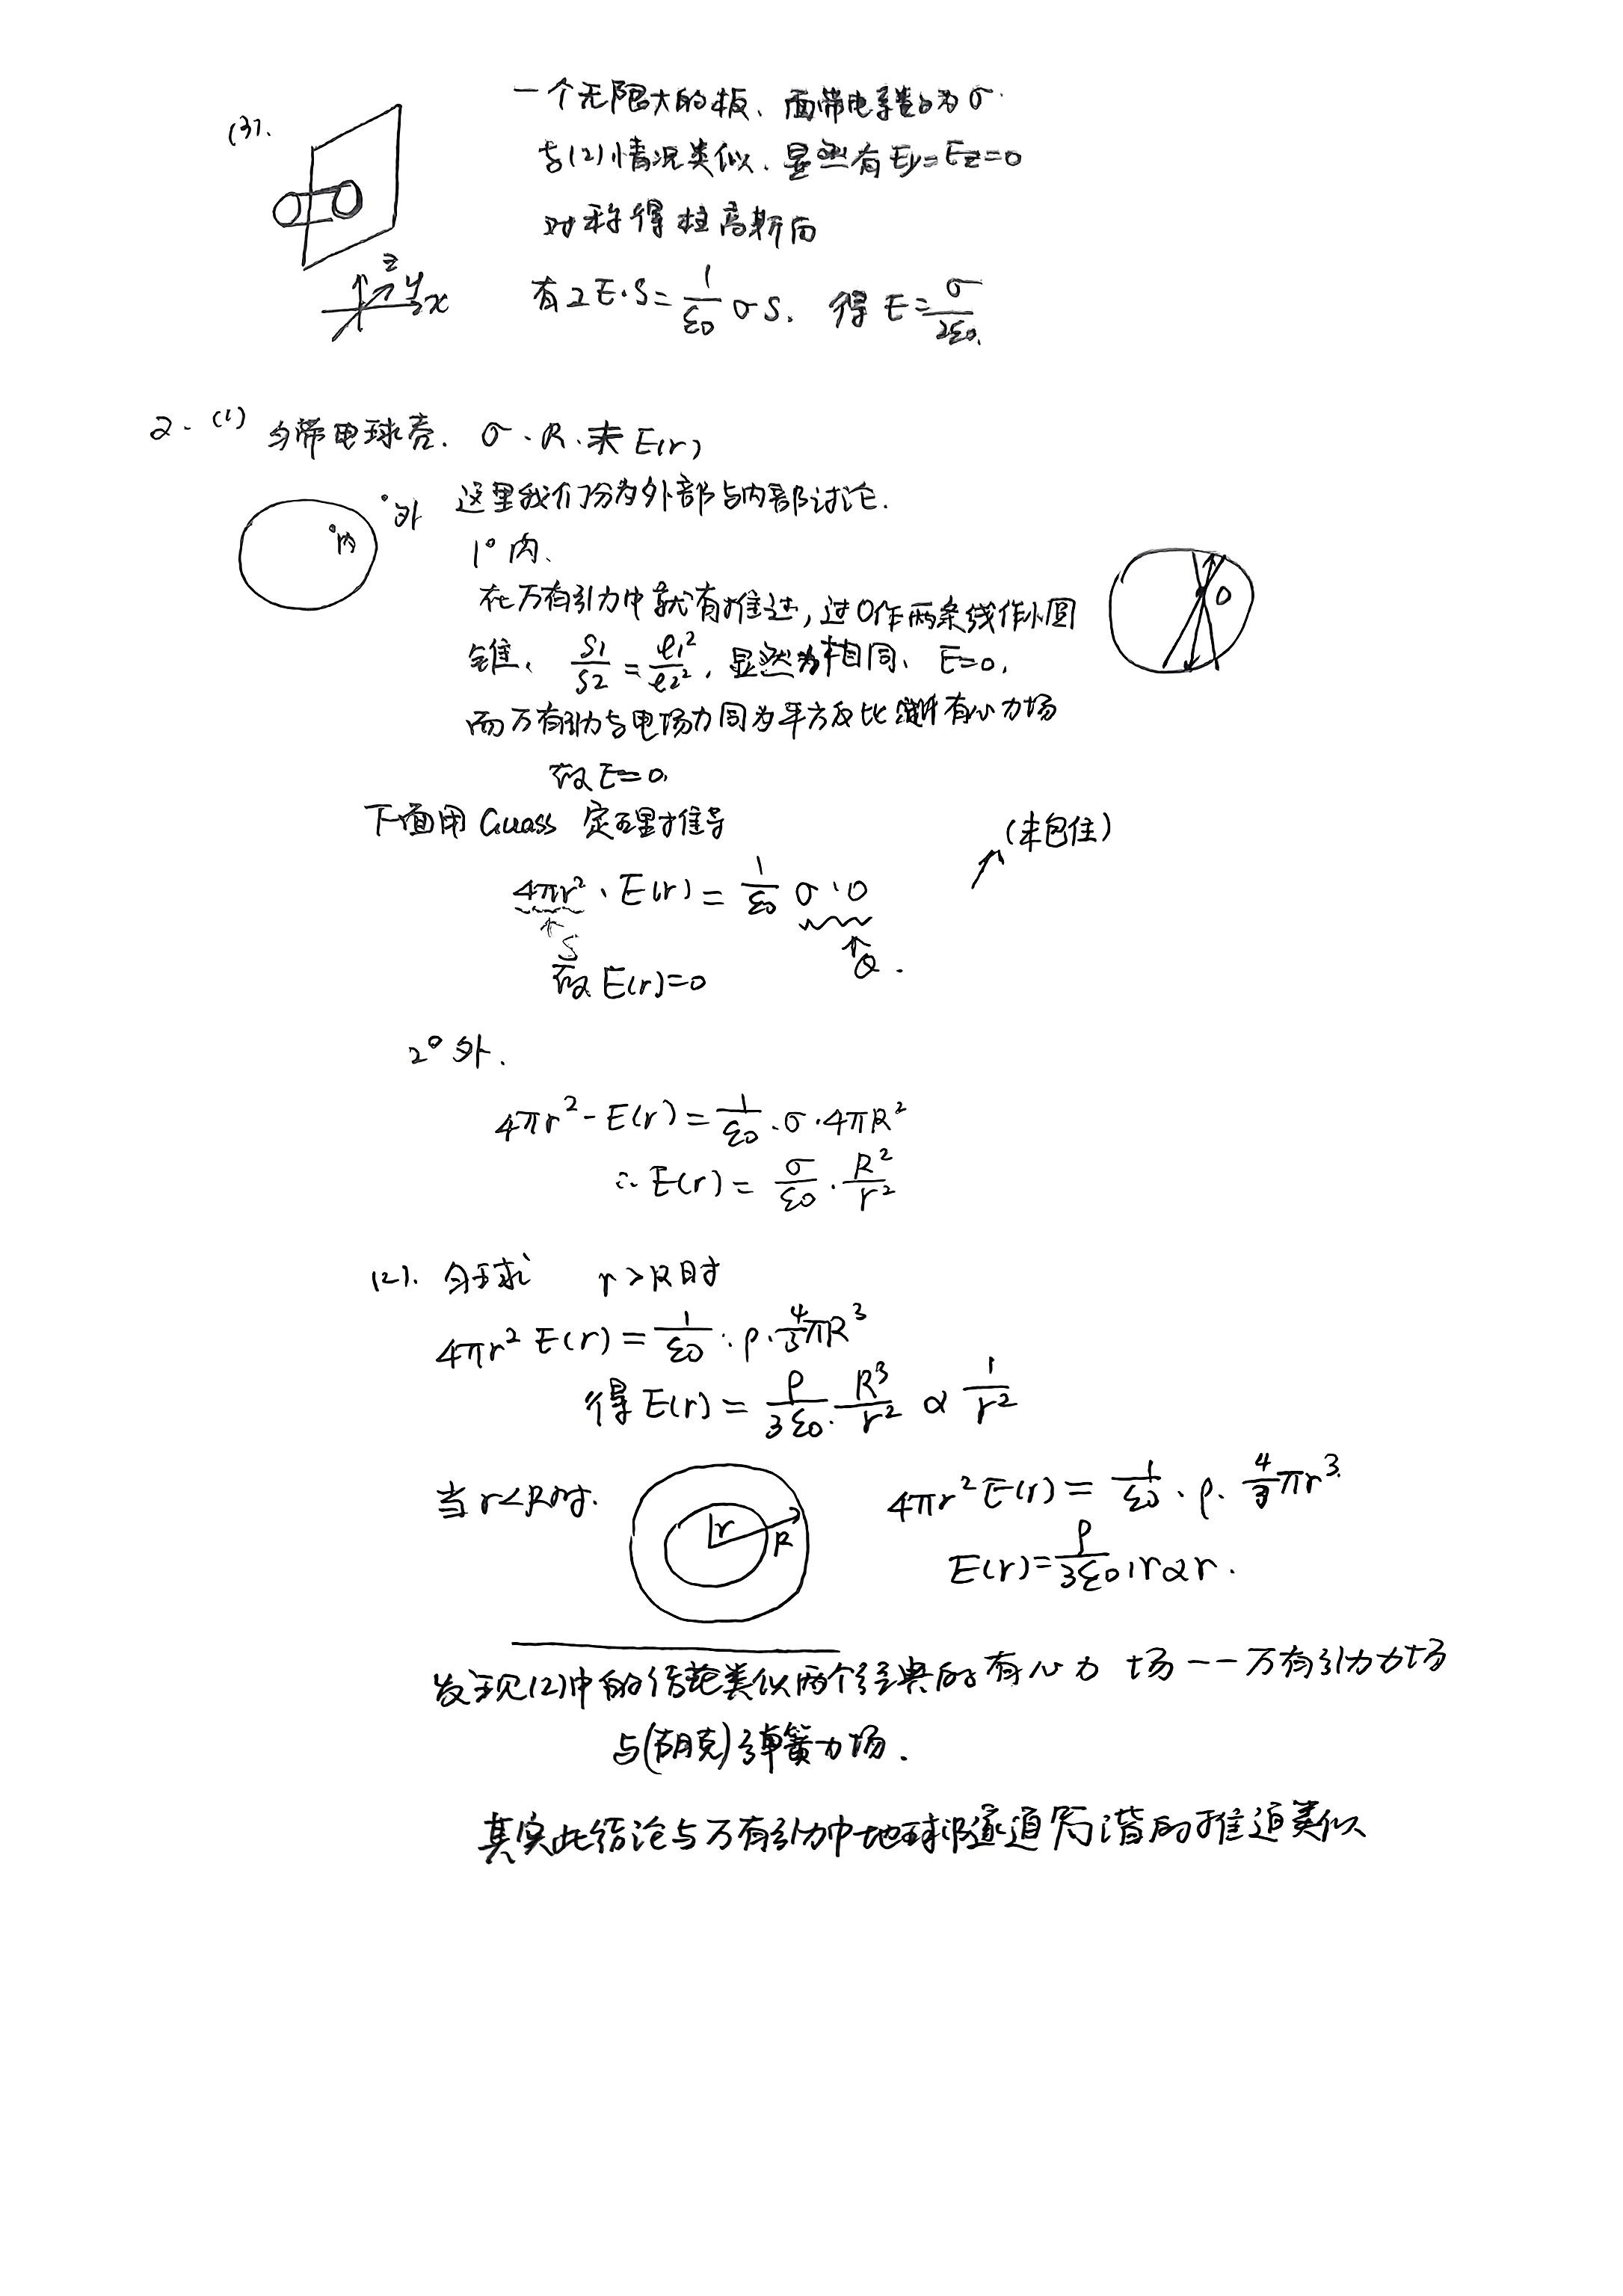 (3).
一个无限大的板、面带电系数为σ.
与(2)情况类似、显然有Ey=Ez=0
对称得柱高斯面
z y x
有2E·S=1/ε0 σS. 得E=σ/2ε0.
2. (1) 匀带电球壳. σ·R.求E(r)
外 内
这里我们分为外部与内部讨论.
1° 内、
在万有引力中就有推过,过O作两条线作小圆
锥、 S1/S2=ℓ1²/ℓ2², 显然为相同、E=0.
O
而万有引力与电场力同为平方反比 有心力场
故E=0.
下面用Guass 定理推导
(未包住)
4πr²·E(r)=1/ε0 σ·0
S Q.
故E(r)=0
2° 外.
4πr²-E(r)=1/ε0·σ·4πR²
∴E(r)=σ/ε0·R²/r²
(2). 匀球 r>R时
4πr²E(r)=1/ε0·ρ·4/3πR³
得E(r)=ρ/3ε0·R³/r² ∝ 1/r²
当r<R时.
r R
4πr²E(r)=1/ε0·ρ·4/3πr³.
E(r)=ρ/3ε0·r∝r.
发现(2)中的结论类似两个经典的有心力场——万有引力力场
与(胡克)弹簧力场.
其实此结论与万有引力中地球隧道简谐的推道类似